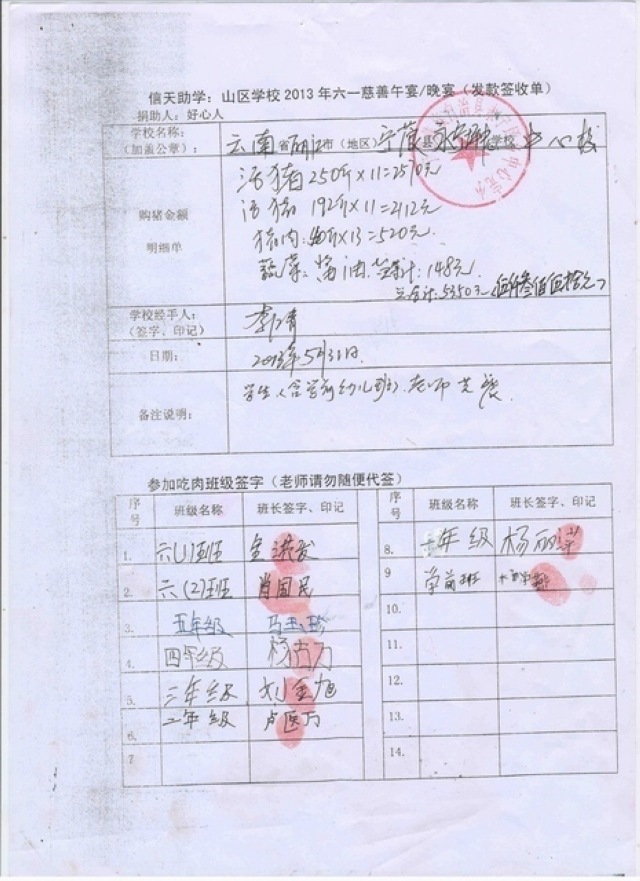 信天助学：山区学校 2013 年六一慈善午宴/晚宴（发款签收单）
捐助人：好心人
学校名称：
（加盖公章）：
云南 省 丽江 市（地区） 宁蒗 县 学校 中心校
购猪金额
明细单
活猪 250斤×11=2510元
活猪 192斤×11=2112元
猪肉：40斤×13=520元
蔬菜、酱油、等计：148元
总合计：5350元（伍仟叁佰伍拾元）
学校经手人：
（签字、印记）
日期：
2013年5月31日
备注说明：
学生（含学前幼儿班）、老师
参加吃肉班级签字（老师请勿随便代签）
序号 班级名称 班长签字、印记 序号 班级名称 班长签字、印记
1. 六(1)班 8. 一年级 杨丽萍
2. 六(2)班 肖国民 9 学前班
3. 五年级 马玉珍 10.
4. 四年级 11.
5. 三年级 刘金旭 12.
6. 二年级 13.
7 14.